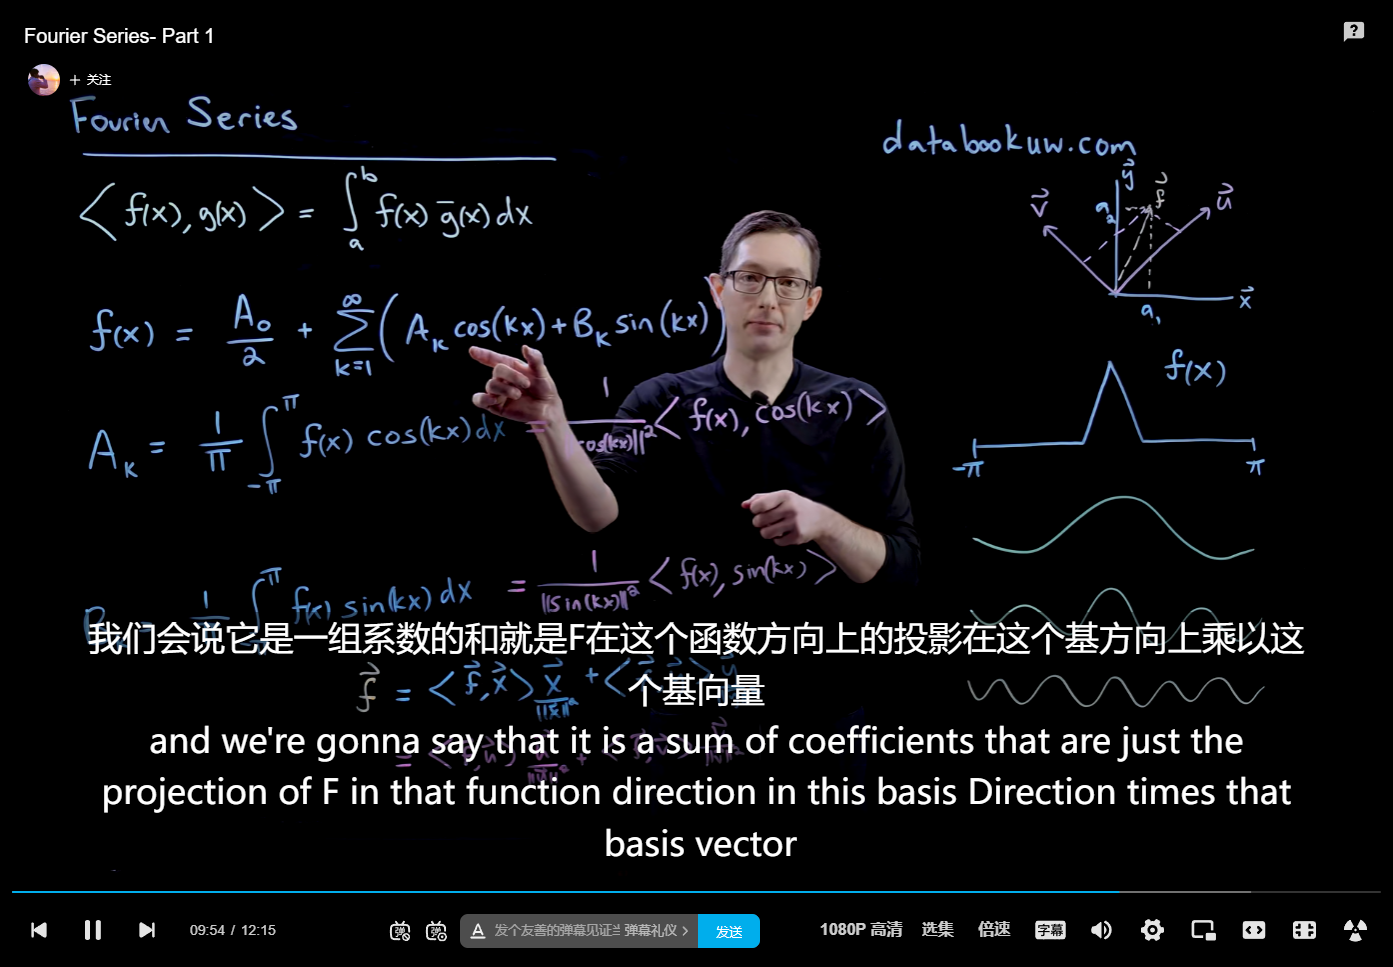 Fourier Series- Part 1
+ 关注
Fourier Series
databookuw.com
⟨f(x), g(x)⟩ = ∫ₐᵇ f(x) ḡ(x) dx
v⃗ y⃗ f⃗ u⃗
a₂
x⃗
a₁
f(x) = A₀/2 + ∑ₖ₌₁^∞ (Aₖ cos(kx) + Bₖ sin(kx)
f(x)
Aₖ = 1/π ∫₋π^π f(x) cos(kx) dx = 1/‖cos(kx)‖² ⟨f(x), cos(kx)⟩
-π π
1/π ∫ π f(x) sin(kx) dx = 1/‖sin(kx)‖² ⟨f(x), sin(kx)⟩
我们会说它是一组系数的和就是F在这个函数方向上的投影在这个基方向上乘以这
个基向量
f⃗ = ⟨f⃗, x⃗⟩ x⃗/‖x⃗‖² + ⟨
and we're gonna say that it is a sum of coefficients that are just the
projection of F in that function direction in this basis Direction times that
basis vector
09:54 / 12:15
弹 弹 A 发个友善的弹幕见证当 弹幕礼仪 > 发送
1080P 高清 选集 倍速 字幕